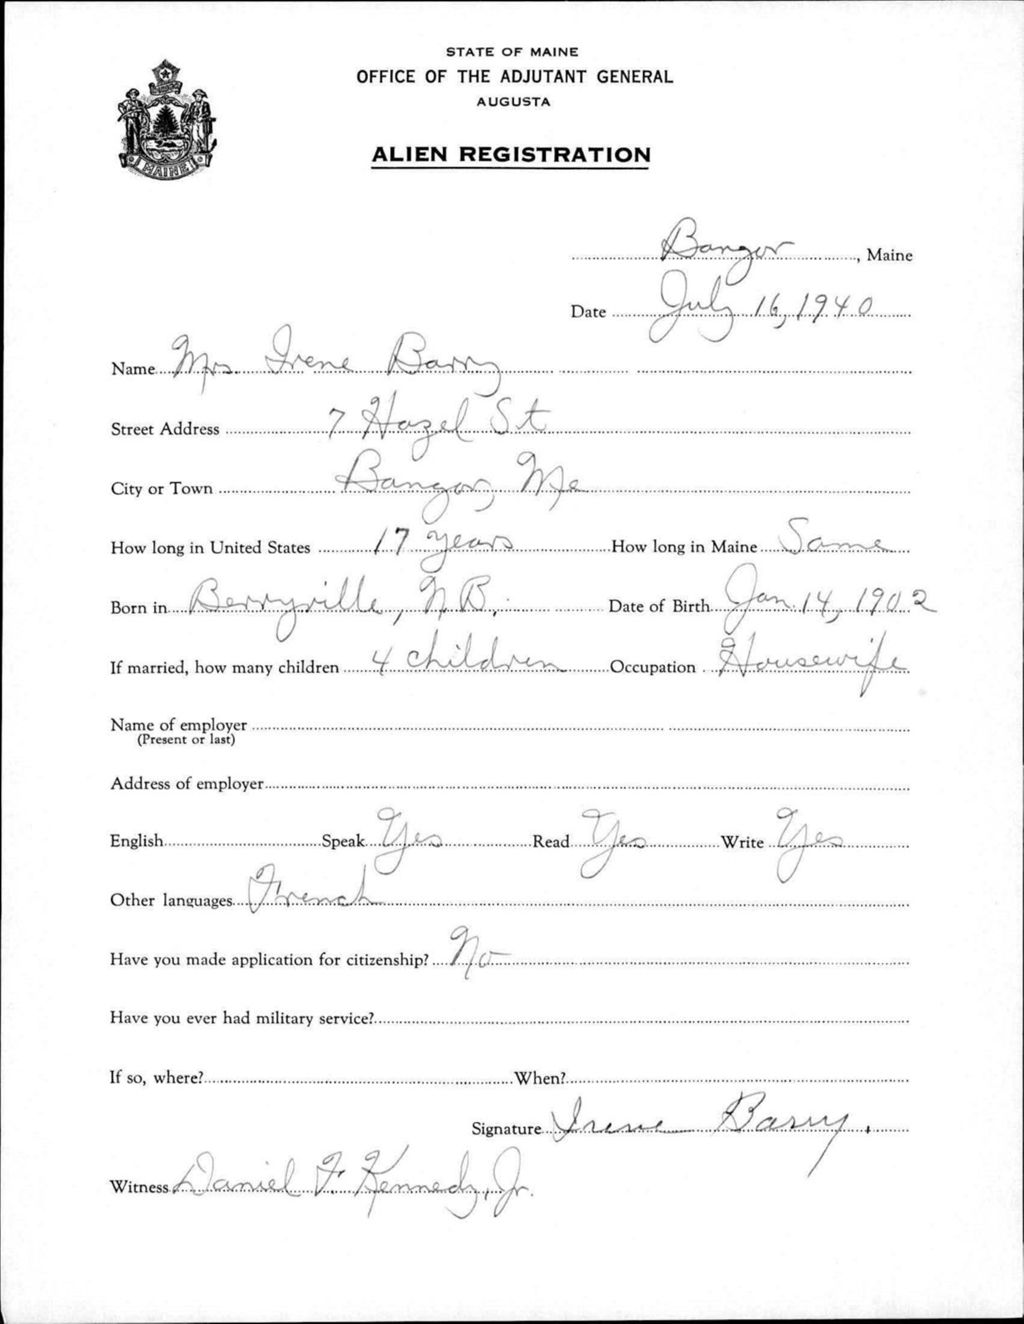 STATE OF MAINE
OFFICE OF THE ADJUTANT GENERAL
AUGUSTA
ALIEN REGISTRATION
MAINE
Bangor, Maine
Date July 16, 1940
Name Mrs Irene Barry
Street Address 7 Hazel St
City or Town Bangor, Me
How long in United States 17 years How long in Maine Same
Born in Berryville, N.B. Date of Birth Jan. 14, 1902
If married, how many children 4 children Occupation Housewife
Name of employer
(Present or last)
Address of employer
English Speak Yes Read Yes Write Yes
Other languages French
Have you made application for citizenship? No
Have you ever had military service?
If so, where? When?
Signature Irene Barry.
Witness Daniel F. Kennedy, Jr.